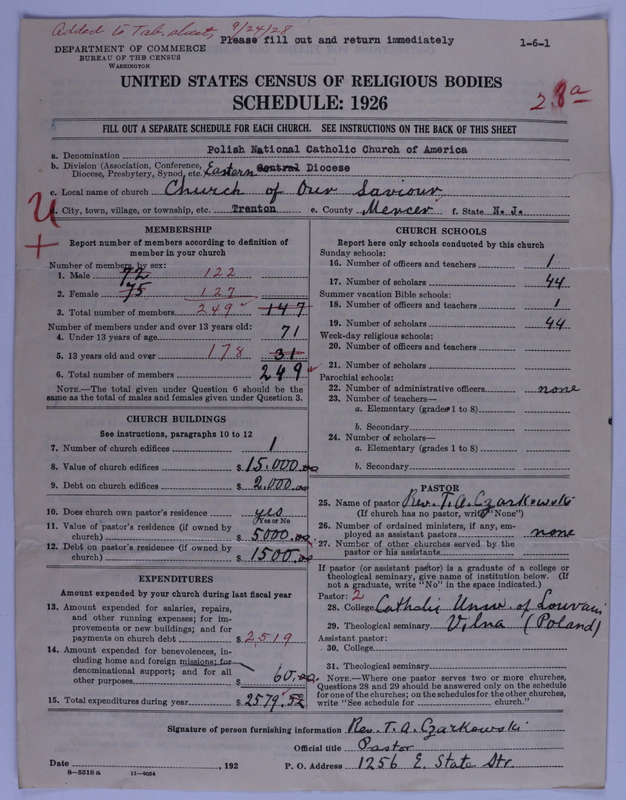 Added to Tab. sheet, 9/24/28
Please fill out and return immediately
1-6-1
DEPARTMENT OF COMMERCE
BUREAU OF THE CENSUS
WASHINGTON
UNITED STATES CENSUS OF RELIGIOUS BODIES
SCHEDULE: 1926
28a
FILL OUT A SEPARATE SCHEDULE FOR EACH CHURCH. SEE INSTRUCTIONS ON THE BACK OF THIS SHEET
a. Denomination Polish National Catholic Church of America
b. Division (Association, Conference, Diocese, Presbytery, Synod, etc.) Eastern Central Diocese
c. Local name of church Church of Our Saviour
d. City, town, village, or township, etc. Trenton e. County Mercer f. State N. J.
U
+
MEMBERSHIP
Report number of members according to definition of
member in your church
Number of members by sex:
1. Male 72 122
2. Female 75 127
3. Total number of members 249 147
Number of members under and over 13 years old:
4. Under 13 years of age 71
5. 13 years old and over 178 31
6. Total number of members 249
NOTE.—The total given under Question 6 should be the
same as the total of males and females given under Question 3.
CHURCH BUILDINGS
See instructions, paragraphs 10 to 12
7. Number of church edifices 1
8. Value of church edifices $ 15.000.00
9. Debt on church edifices $ 2.000.00
10. Does church own pastor's residence? yes
(Yes or No)
11. Value of pastor's residence (if owned by
church) $ 5000.00
12. Debt on pastor's residence (if owned by
church) $ 1500.00
EXPENDITURES
Amount expended by your church during last fiscal year
13. Amount expended for salaries, repairs,
and other running expenses; for im-
provements or new buildings; and for
payments on church debt $ 2519
14. Amount expended for benevolences, in-
cluding home and foreign missions; for
denominational support; and for all
other purposes $ 60.00
15. Total expenditures during year $ 2579.52
CHURCH SCHOOLS
Report here only schools conducted by this church
Sunday schools:
16. Number of officers and teachers 1
17. Number of scholars 44
Summer vacation Bible schools:
18. Number of officers and teachers 1
19. Number of scholars 44
Week-day religious schools:
20. Number of officers and teachers
21. Number of scholars
Parochial schools:
22. Number of administrative officers none
23. Number of teachers—
a. Elementary (grades 1 to 8)
b. Secondary
24. Number of scholars—
a. Elementary (grades 1 to 8)
b. Secondary
PASTOR
25. Name of pastor Rev. T. A. Czarkowski
(If church has no pastor, write "None")
26. Number of ordained ministers, if any, em-
ployed as assistant pastors none
27. Number of other churches served by the
pastor or his assistants
If pastor (or assistant pastor) is a graduate of a college or
theological seminary, give name of institution below. (If
not a graduate, write "No" in the space indicated.)
Pastor: 2
28. College Catholic Univ. of Louvain
29. Theological seminary Vilna (Poland)
Assistant pastor:
30. College
31. Theological seminary
NOTE.—Where one pastor serves two or more churches,
Questions 28 and 29 should be answered only on the schedule
for one of the churches; on the schedules for the other churches,
write "See schedule for church."
Signature of person furnishing information Rev. T. A. Czarkowski
Official title Pastor
Date , 192 P. O. Address 1256 E. State Str.
8—5518 a 11—9054